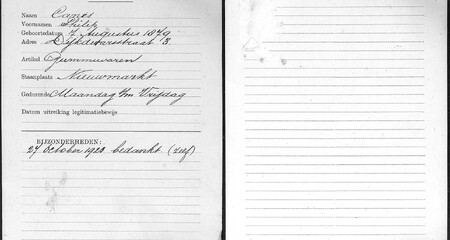 Naam Canes
Voornamen Philip
Geboortedatum 7 Augustus 1879
Adres Dijkdwarsstraat 3.
Artikel Gummiwaren
Staanplaats Nieuwmarkt
Gedurende Maandag t/m Vrijdag
Datum uitreiking legitimatiebewijs
BIJZONDERHEDEN:
27 October 1920 bedankt (zelf)